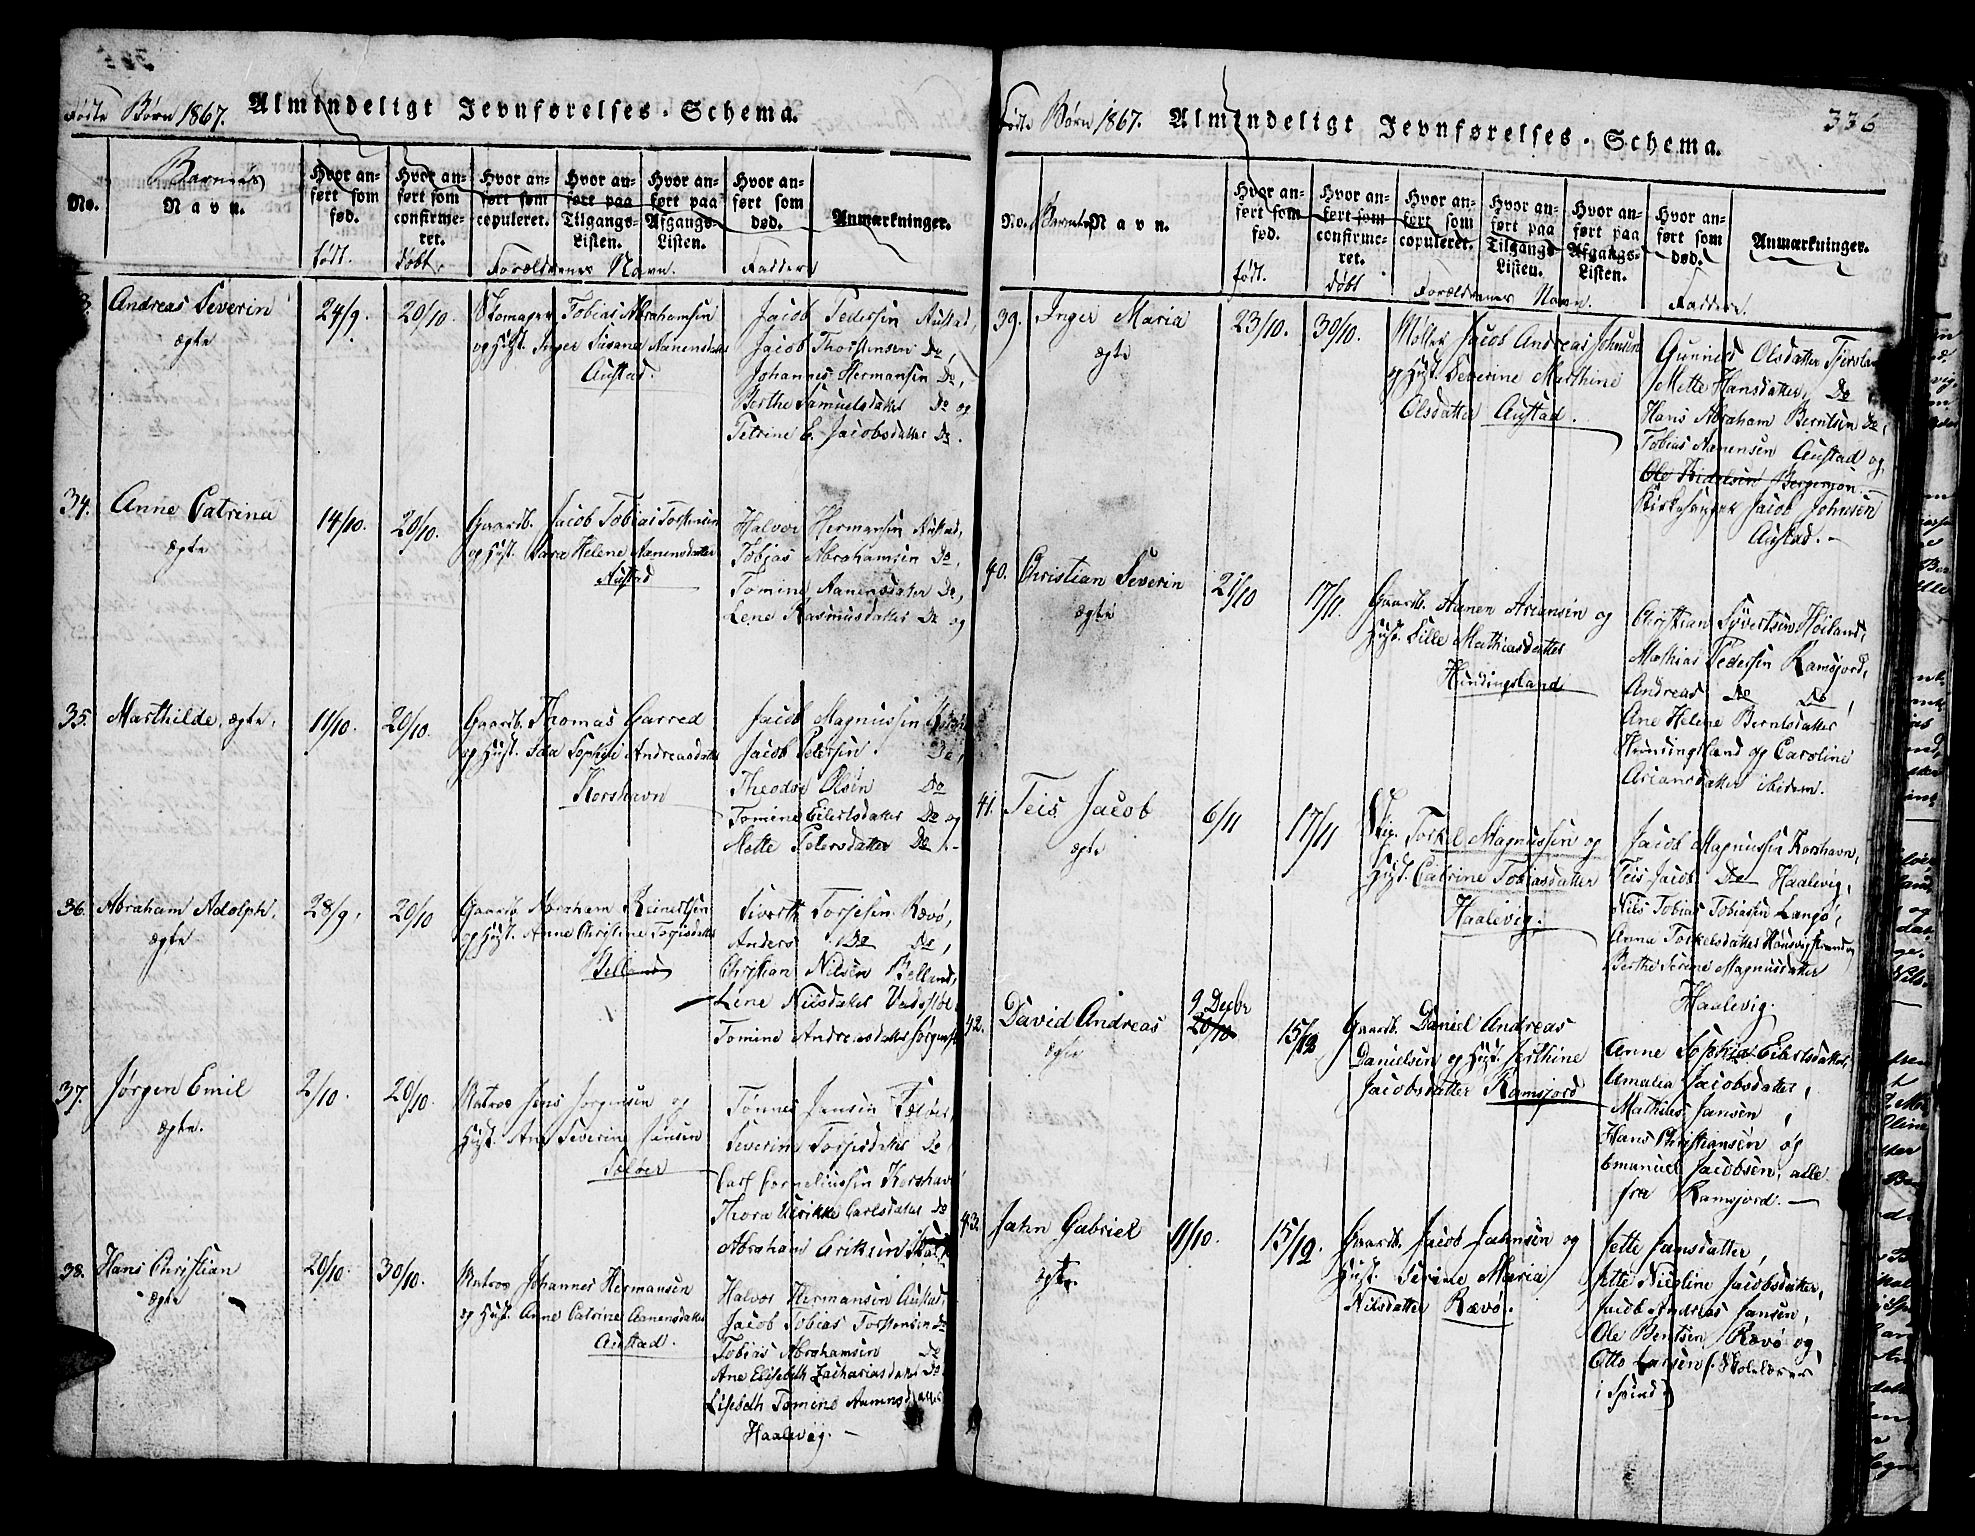 Fødte Børn 1867. Almindeligt Jevnførelses-Schema.
No.
Barnets
Navn.
Hvor anført som fød.
født.
Hvor anført som confirmeret.
døbt.
Hvor anført som copuleret.
Hvor anført paa Tilgangs-Listen.
Hvor anført paa Afgangs-Listen.
Forældrenes Navn.
Hvor anført som død.
Faddere
Anmærkninger.
Andreas Severin
ægte
24/9.
20/10.
Skomager Tobias Abrahamsen
og Hust. Inger Susane Aanensdatter
Austad.
Jacob Pedersen Austad,
Jacob Thorstensen Do,
Johannes Hermansen Do,
Berthe Samuelsdatter Do og
Petrine E. Jacobsdatter Do.
34. Anne Catrina
ægte
14/10.
20/10.
Gaardb. Jacob Tobias Torstensen
og Hust. Sara Helene Aanensdatter
Austad
Halvor Hermansen Austad,
Tobias Abrahamsen Do,
Tomine Aanensdatter Do,
Lene Rasmusdatter Do og
35. Marthilde, ægte.
11/10.
20/10.
Gaardb. Thomas Garred
og Hust. Ida Sophie Andreasdatter
Korshavn
Jacob Magnussen
Jacob Pedersen. Do,
Theodor Olsen Do
Tomine Eilertsdatter Do og
Mette Petersdatter Do.-
36. Abraham Adolph.
ægte
28/9.
20/10
Gaardb. Abraham Reinertsen
og Hust. Anne Christine Torjusdatter
Belland
Siverth Torjesen Rævø,
Anders Do Do,
Christian Nilsen Belland,
Lene Nilsdatter
Tomine Andreasdatter
37. Jørgen Emil
ægte.
2/10.
20/10.
Matros Jens Jørgensen og
Hust. Ane Severine Jansen
Sæløer
Tønnes Jensen Sæløer,
Severine Torjusdatter Do
Carl Corneliussen Korshavn
Thora Ulrikke Carlsdatter Do
Abraham Eriksen
38. Hans Christian
ægte
20/10.
30/10.
Matros Johannes Hermansen
og Hust. Anne Catrine Aanensdatter
Austad.
Halvor Hermansen Austad,
Jacob Tobias Torstensen Do
Tobias Abrahamsen Do
Ane Elisebeth Zachariasdatter Do
Lisebeth Tomine Aanensdatter
Haalevig.-
Fødte Børn 1867. Almindeligt Jevnførelses-Schema.
336
No.
Barnets Navn.
Hvor anført som fød.
født.
Hvor anført som confirmeret.
døbt
Hvor anført som copuleret.
Hvor anført paa Tilgangs-Listen.
Hvor anført paa Afgangs-Listen.
Forældrenes Navn.
Hvor anført som død.
Faddere.
Anmærkninger.
39. Inger Maria
ægte
23/10.
30/10.
Møller Jacob Andreas Johnsen
og Hust. Severine Marthine
Olsdatter Austad.
Gunned Olsdatter
Mette Hansdatter, Do
Hans Abraham Berntsen Do,
Tobias Aanensen Austad og
Kirkesanger Jacob Johnsen
Austad.-
40. Christian Severin
ægte
21/10
17/11.
Gaardb. Aanen Ariansen og
Hust. Sille Mathiasdatter
Hundingsland
Christian Syvertsen Høiland,
Mathias Pedersen Ramsjord,
Andreas Do Do,
Ane Helene Berntsdatter
Hundingsland og Caroline
Ariansdatter ibidem.
41. Teis Jacob
ægte
6/11
17/11
Skip. Torkel Magnussen og
Hust. Catrine Tobiasdatter
Haalevig.
Jacob Magnussen Korshavn,
Teis Jacob Do Haalevig,
Nils Tobias Tobiasen Langø,
Anna Torkelsdatter
Berthe Serine Magnusdatter
Haalevig.
42. David Andreas
ægte
9 Decbr
20/10
15/12
Gaardb. Daniel Andreas
Danielsen og Hust. Jerthine
Jacobsdatter Ramsjord
Anne Sophia Eilertsdatter,
Amalia Jacobsdatter,
Mathias Jansen,
Hans Christiansen og
Emanuel Jacobsen, alle
fra Ramsjord.-
43. Jahn Gabriel
ægte.
11/10.
15/12.
Gaardb. Jacob Jahnsen og
Hust. Serine Maria
Nilsdatter Rævø.
Jette Jansdatter,
Jette Nicoline Jacobsdatter,
Jacob Andreas Jansen,
Ole Bentsen Rævø og
Otto Larsen (Skolelærer
i Spind)